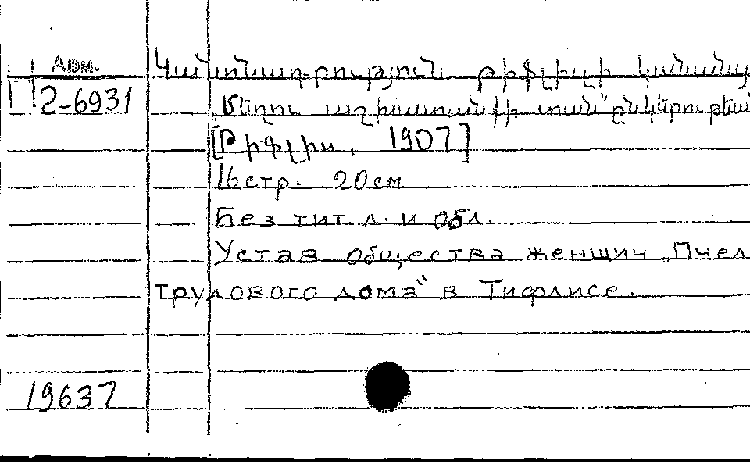 Арм.
Կանոնադրություն թիֆլիսի կանանց
2-6931
„Մեղու աշխատանքի տան" ընկերութեան
[Թիֆլիս, 1907]
16 стр. 20 см
Без тит. л. и обл.
Устав общества женщин „Пчел
трудового дома" в Тифлисе.
19637